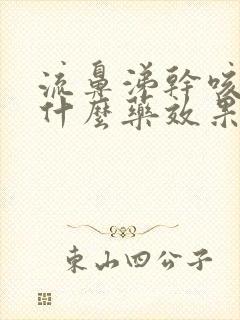 流鼻涕幹咳
什麼藥效果
東山四公子